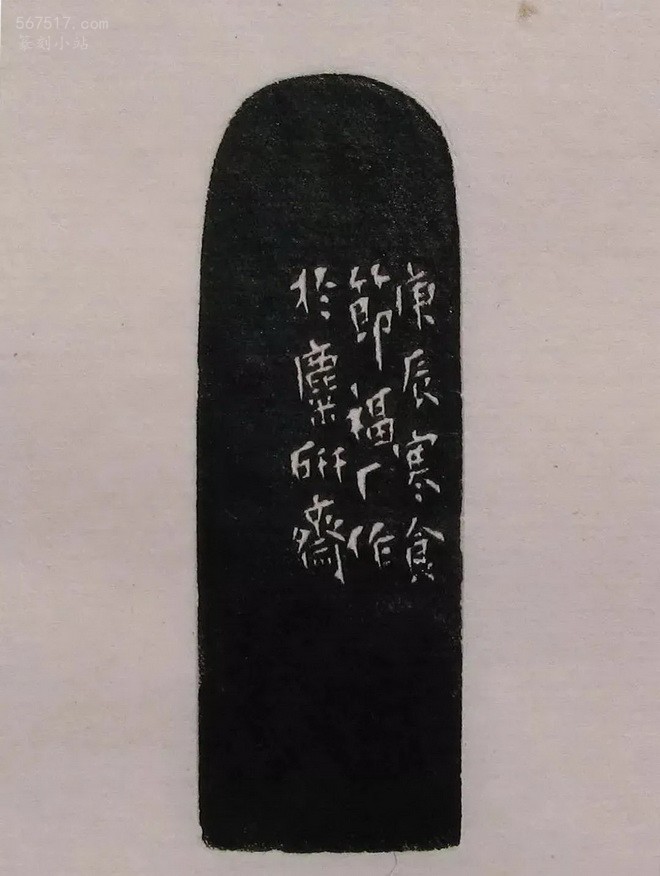 567517.com
篆刻小站
庚辰寒食
節福厂作
於麋研齋